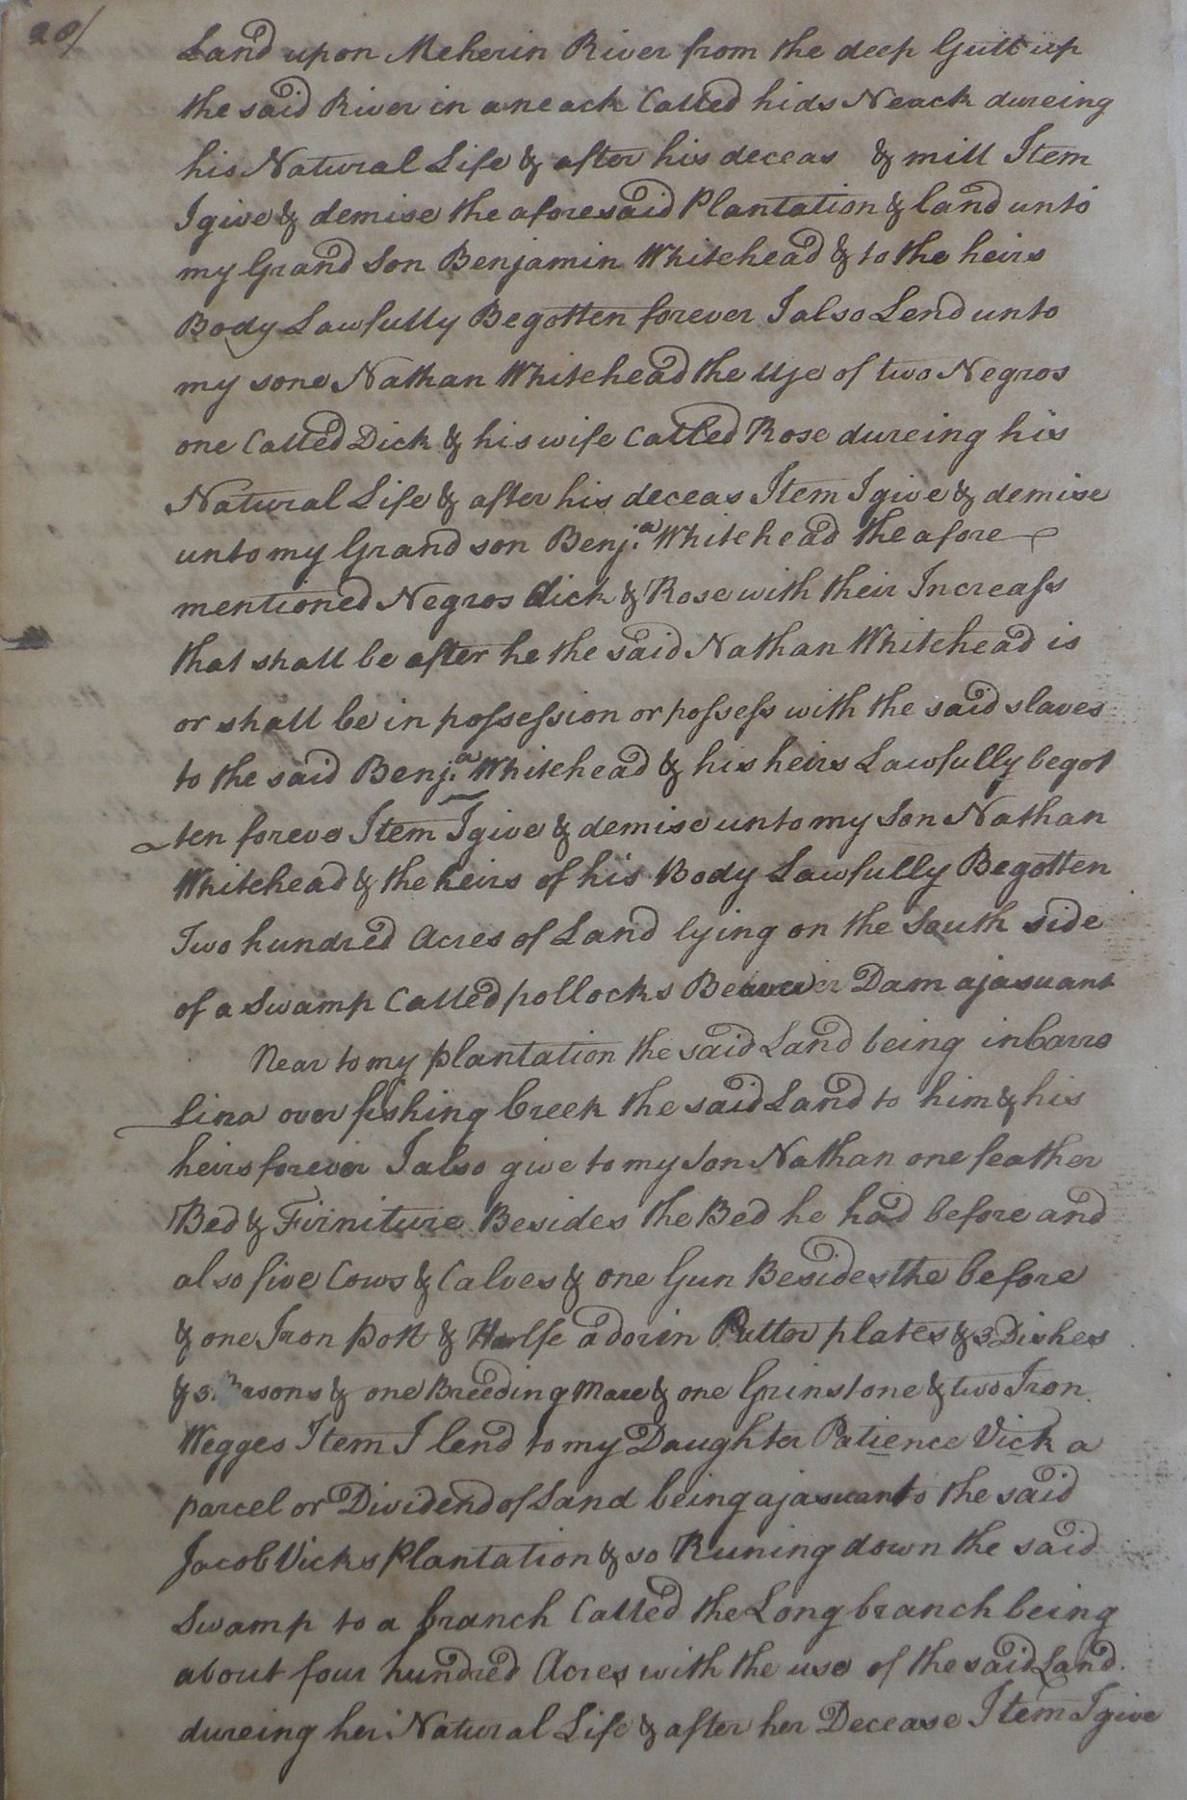 28/
Land upon Meherin River from the deep Gutt up
the said River in a neack Called hids Neack dureing
his Natural Life & after his deceas & mill Item
I give & demise the aforesaid Plantation & land unto
my Grand Son Benjamin Whitehead & to the heirs
Body Lawfully Begotten forever I also Lend unto
my sone Nathan Whitehead the Use of two Negros
one Called Dick & his wife Called Rose dureing his
Natural Life & after his deceas Item I give & demise
unto my Grand son Benj.a Whitehead the afore
mentioned Negros dick & Rose with their Increass
that shall be after he the said Nathan Whitehead is
or shall be in possession or possess with the said slaves
to the said Benj.a Whitehead & his heirs Lawfully begot
ten foreve Item I give & demise unto my Son Nathan
Whitehead & the heirs of his Body Lawfully Begotten
Two hundred Acres of Land lying on the South side
of a Swamp Called pollocks Beaver Dam ajasuant
Near to my plantation the said Land being in Carro
lina over fishing Creek the said Land to him & his
heirs forever I also give to my Son Nathan one feather
Bed & Firniture Besides the Bed he had before and
also five Cows & Calves & one Gun Besides the before
& one Iron Pott & Halfe a dorin Putter plates & 3 Dishes
& 3 Basons & one Breeding Mare & one Grinstone & two Iron
Wegges Item I lend to my Daughter Patience Vick a
parcel or Dividend of Land being ajasuant to the said
Jacob Vicks Plantation & so Runing down the said
Swamp to a branch Called the Long branch being
about four hundred Acres with the use of the said Land
dureing her Natural Life & after her Decease Item I give